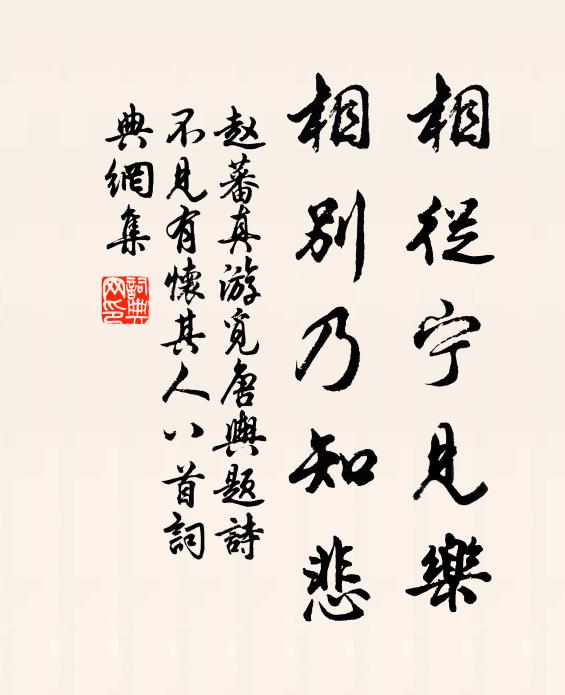 相從宁見樂
相别乃知悲
赵蕃真游覓唐與题詩
不見有懷其人八首詞
典網集
詞典网印